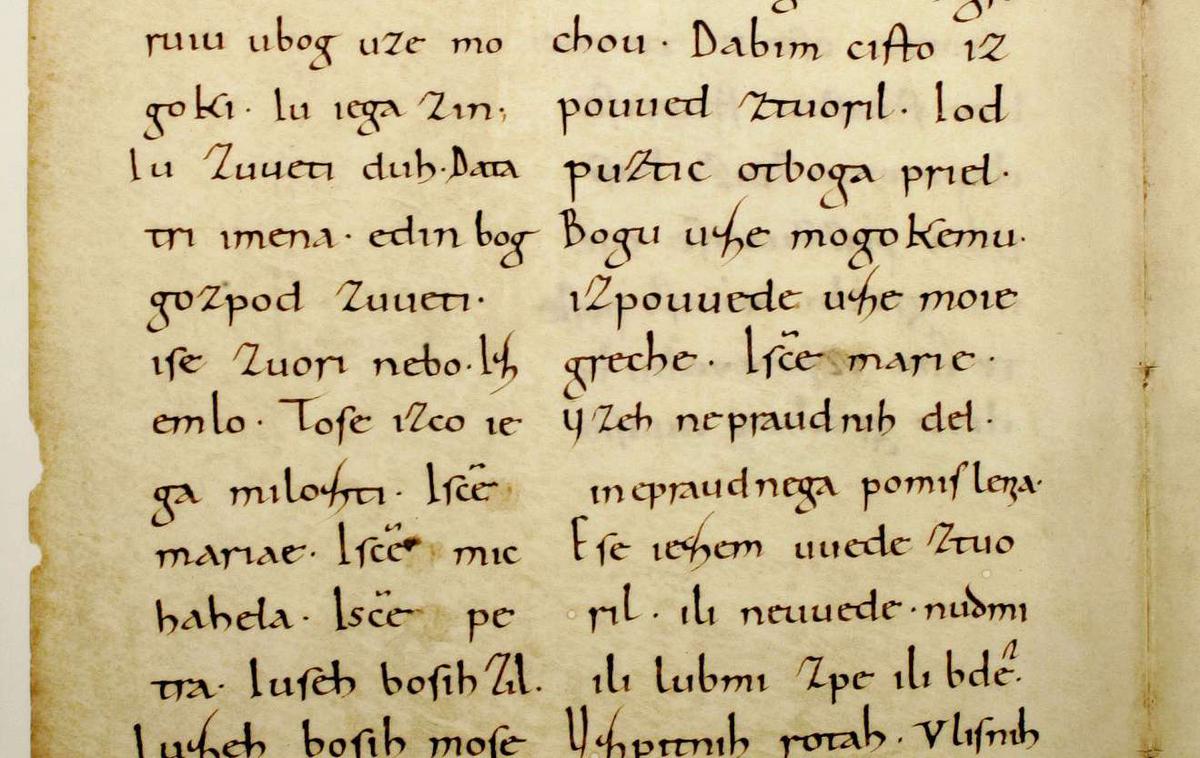 ruiu ubog uze mo
goki· Iu iega Zin;
Iu Zuueti duh· Data
tri imena· edin bog
gozpod Zuueti·
iſe Zuori nebo· Iſh
emlo· Toſe izco ie
ga miloſhti· Iſc̃e
mariae· Iſc̃e mic
hahela· Iſc̃e pe
tra· Iuſeh boſih Zil.
Iuſheh boſih moſe
chou· Dabim ciſto iz
pouued Ztuoril· Iod
puztic otboga priel·
Bogu uſhe mogokemu·
izpouuede uſhe moie
greche· Iſc̃e marie·
Uzeh nepraudnih del·
inepraudnega pomiſlena·
Eſe ieſhem uuede Ztuo
ril· ili neuuede· nudmi
ili lubmi Zpe ili bde·
Uſhpitnih rotah· Vliſnih